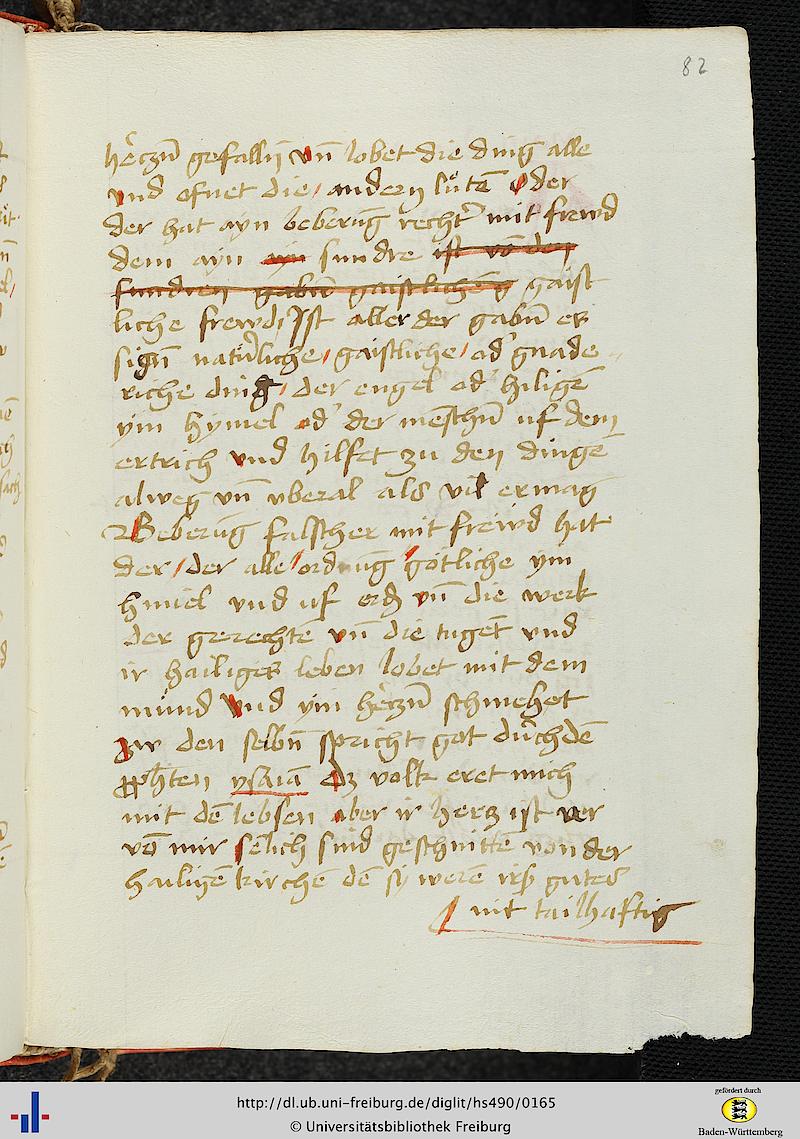 82
herczn̄ gefallñ vn̄ lobet die ding alle
vnd ofnet die andern lütē oder
der hat ayn beberūg recht' mit frewd
dem ayn ayn sundre ist vō den
sundren gabn̄ gaistlichen gaist
liche frewd Ist aller der gabn̄ es
sign̄ naturliche gaistliche od' gnade
riche ding der engel od' hiligē
ym hymel od' der mēschn̄ uf dem
ertrich vnd hilfet zu den dingē
alweg vn̄ vberal als vil er mag
Beberūg falscher mit frewd hat
der der alle ordnūg götliche ym
hmiel vnd uf erd vn̄ die werk
der gerechtē vn̄ die tugēt vnd
ir hailiges leben lobet mit dem
mund vnd ym herczn̄ schmehet
zw den selbn̄ spricht got durch dē
pphten ysaiā dz volk eret mich
mit dē lebsen aber ir hercz ist ver
vō mir selich sind geschnittē von der
hailigē kirchē dē sy werē irs gutes
nit tailhaftig
http://dl.ub.uni-freiburg.de/diglit/hs490/0165
© Universitätsbibliothek Freiburg
gefördert durch
Baden-Württemberg